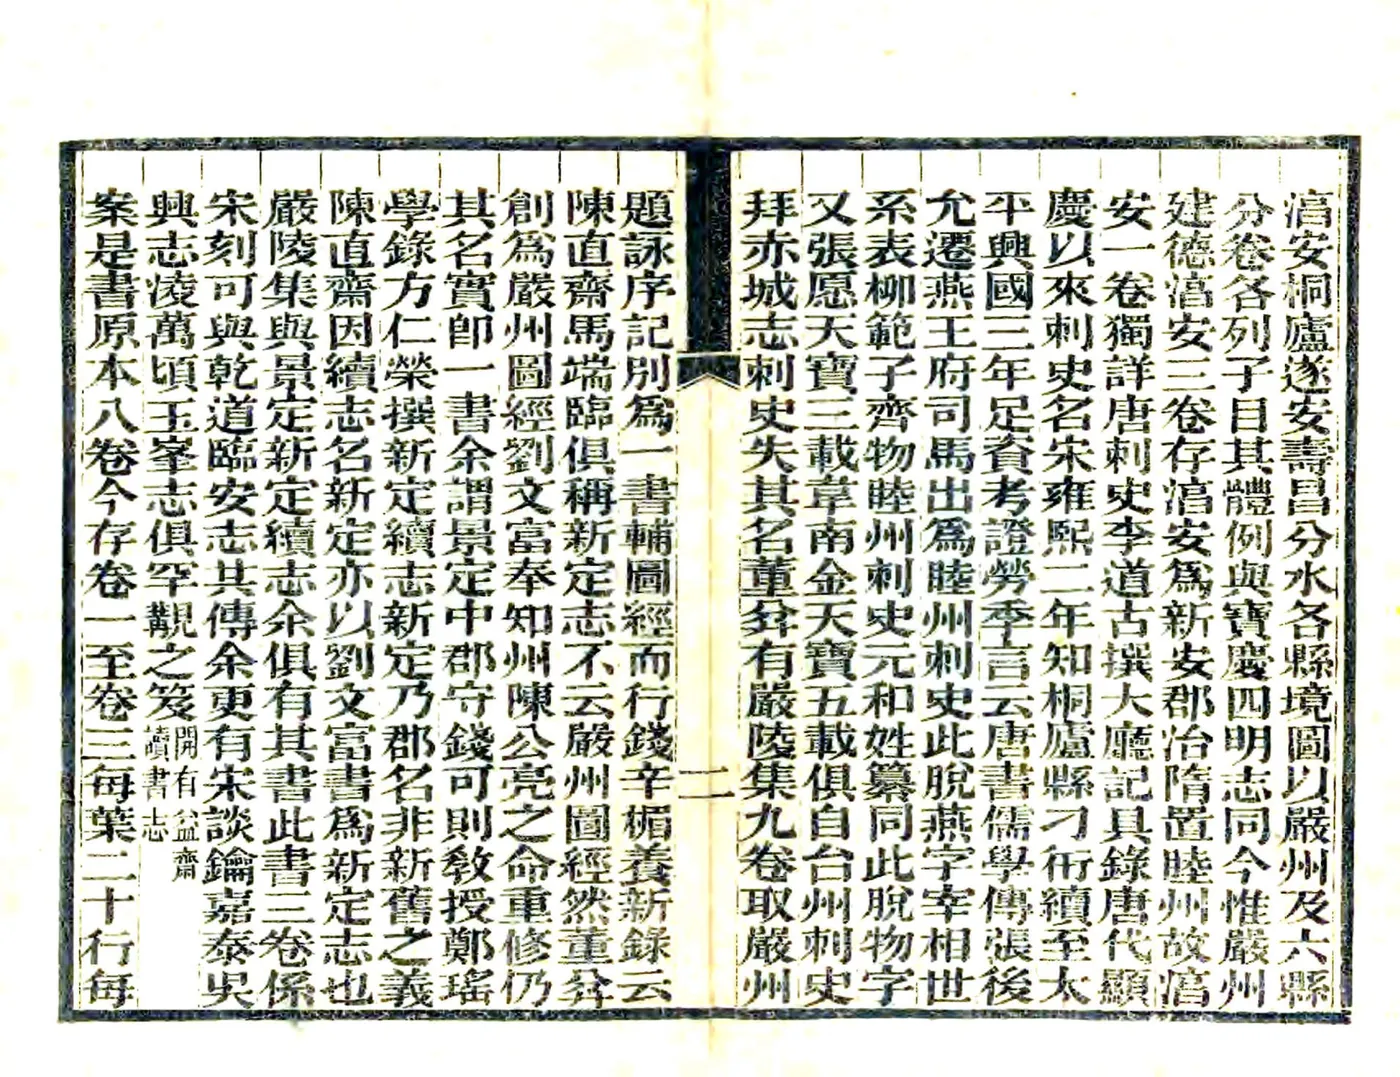 淳安桐廬遂安壽昌分水各縣境圖以嚴州及六縣
分卷各列子目其體例與寶慶四明志同今惟嚴州
建德淳安三卷存淳安爲新安郡冶隋置睦州故淳
安一卷獨詳唐刺史李道古撰大廳記具錄唐代顯
慶以來刺史名宋雍熙二年知桐廬縣刁衎續至太
平興國三年足資考證勞季言云唐書儒學傳張後
允遷燕王府司馬出爲睦州刺史此脫燕字宰相世
系表柳範子齊物睦州刺史元和姓纂同此脫物字
又張愿天寶三載韋南金天寶五載俱自台州刺史
拜赤城志刺史失其名董弅有嚴陵集九卷取嚴州
二
題詠序記別爲一書輔圖經而行錢辛楣養新錄云
陳直齋馬端臨俱稱新定志不云嚴州圖經然董弅
創爲嚴州圖經劉文富奉知州陳公亮之命重修仍
其名實卽一書余謂景定中郡守錢可則敎授鄭瑤
學錄方仁榮撰新定續志新定乃郡名非新舊之義
陳直齋因續志名新定亦以劉文富書爲新定志也
嚴陵集與景定新定續志余俱有其書此書三卷係
宋刻可與乾道臨安志其傳余更有宋談鑰嘉泰吳
興志凌萬頃玉峯志俱罕觀之笈開有益齋
讀書志
案是書原本八卷今存卷一至卷三每葉二十行每